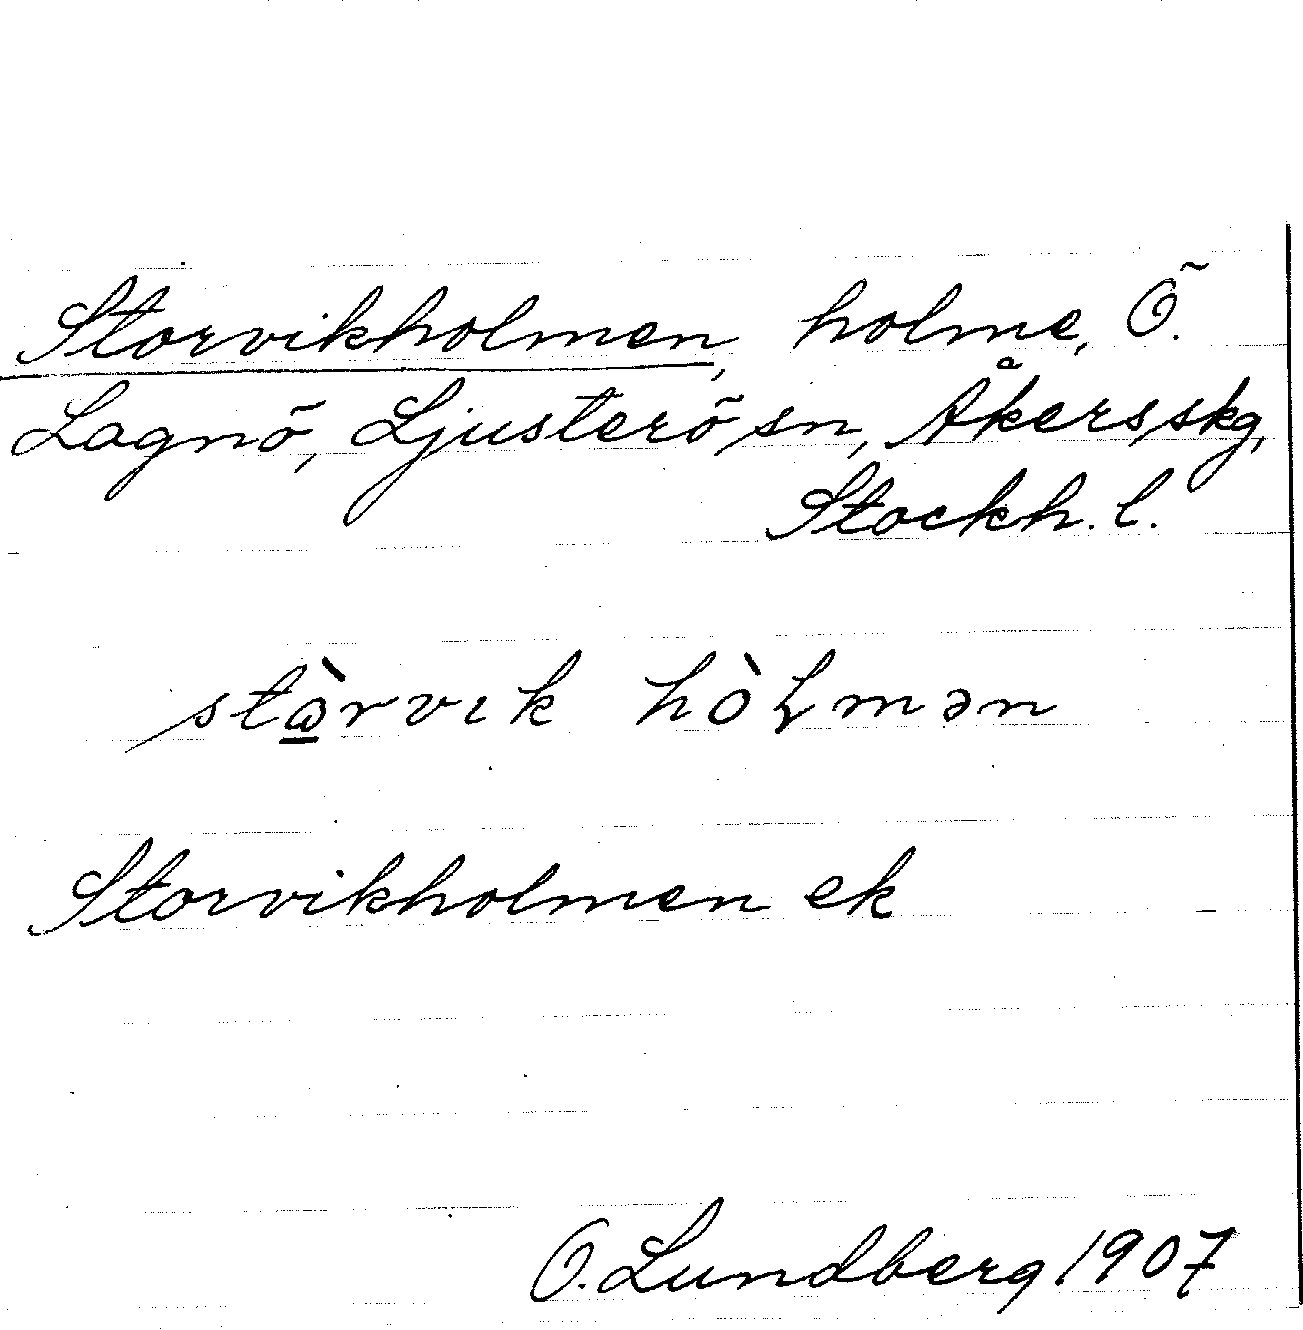 Storvikholmen, holme, Ö.
Lagnö, Ljusterö sn, Åkers skg,
Stockh. l.
stὼrvık hòɫmən
Storvikholmen ek
O. Lundberg 1907